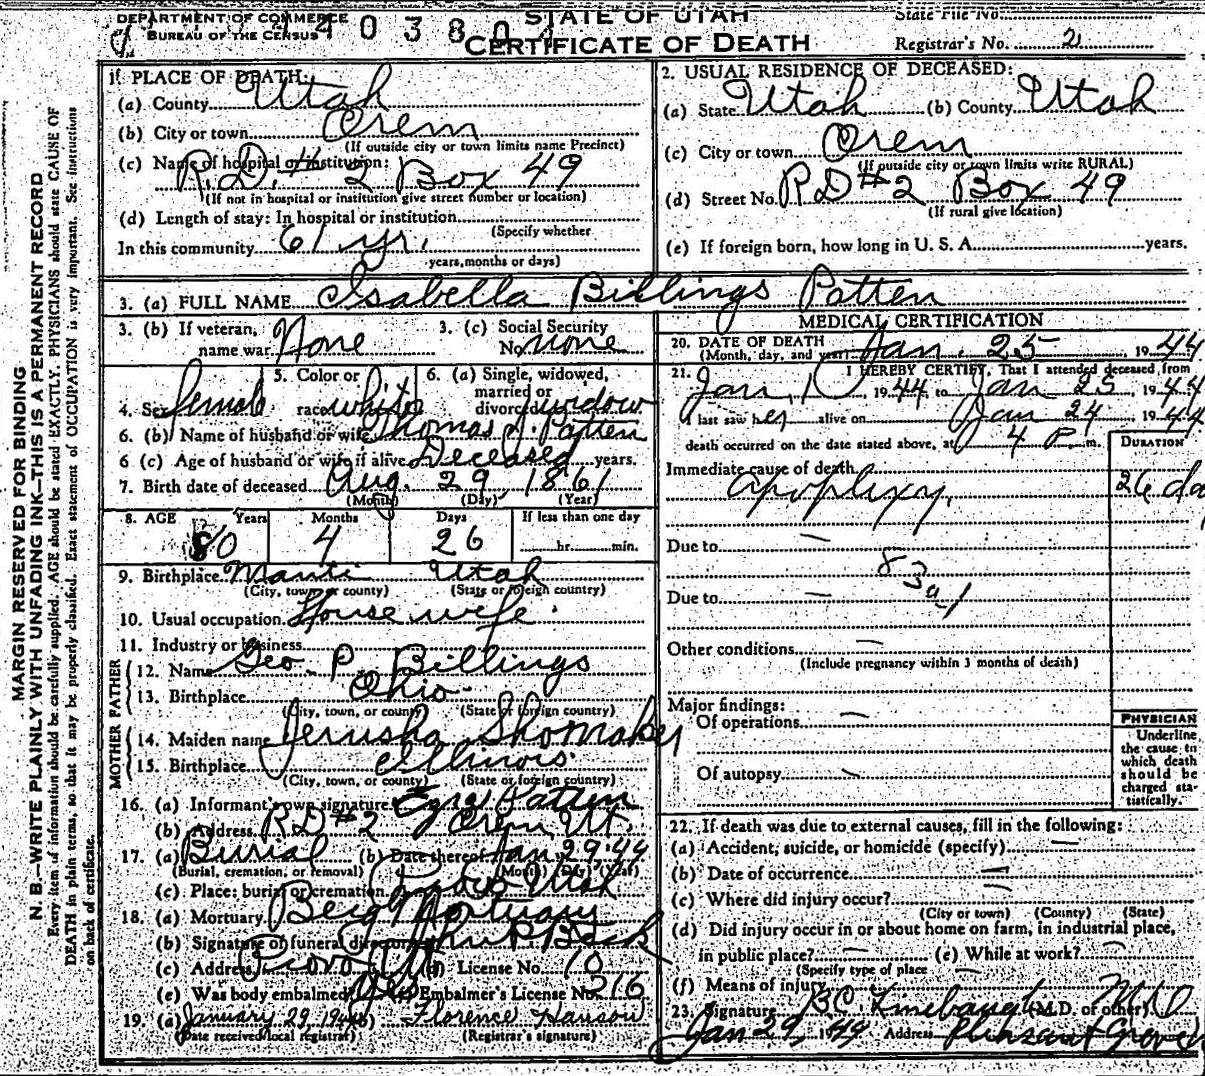 DEPARTMENT OF COMMERCE
BUREAU OF THE CENSUS
STATE OF UTAH
CERTIFICATE OF DEATH
State File No.
Registrar's No. 2
MARGIN RESERVED FOR BINDING
N. B.—WRITE PLAINLY WITH UNFADING INK—THIS IS A PERMANENT RECORD
Every item of information should be carefully supplied. AGE should be stated EXACTLY. PHYSICIANS should state CAUSE OF
DEATH in plain terms, so that it may be properly classified. Exact statement of OCCUPATION is very important. See instructions
on back of certificate.
1. PLACE OF DEATH:
(a) County Utah
(b) City or town Orem
(If outside city or town limits name Precinct)
(c) Name of hospital or institution:
R.D. # 2 Box 49
(If not in hospital or institution give street number or location)
(d) Length of stay: In hospital or institution
(Specify whether
In this community 61 yr.
years, months or days)
2. USUAL RESIDENCE OF DECEASED:
(a) State Utah (b) County Utah
(c) City or town Orem
(If outside city or town limits write RURAL)
(d) Street No. RD #2 Box 49
(If rural give location)
(e) If foreign born, how long in U. S. A. years.
3. (a) FULL NAME Isabella Billings Patten
3. (b) If veteran, name war None
3. (c) Social Security No. none
4. Sex female
5. Color or race white
6. (a) Single, widowed, married or divorced widow
6. (b) Name of husband or wife Thomas J. Patten
6 (c) Age of husband or wife if alive Deceased years.
7. Birth date of deceased Aug. 29, 1861
(Month) (Day) (Year)
8. AGE Years Months Days If less than one day
80 4 26 hr. min.
9. Birthplace Manti Utah
(City, town, or county) (State or foreign country)
10. Usual occupation House wife
11. Industry or business
FATHER
12. Name Geo. P. Billings
13. Birthplace Ohio
(City, town, or county) (State or foreign country)
MOTHER
14. Maiden name Jerusha Shomaker
15. Birthplace Illinois
(City, town, or county) (State or foreign country)
16. (a) Informant's own signature Patten
(b) Address RD #2 Orem, Ut.
17. (a) Burial (b) Date thereof Jan 29, 44
(Burial, cremation, or removal) (Month) (Day) (Year)
(c) Place: burial or cremation Provo Utah
18. (a) Mortuary Berg Mortuary
(b) Signature of funeral director
(c) Address Provo Ut (d) License No. 10
(e) Was body embalmed Yes Embalmer's License No. 216
19. (a) January 29, 1944 (b) Florence Hanson
(Date received local registrar) (Registrar's signature)
MEDICAL CERTIFICATION
20. DATE OF DEATH
(Month, day, and year) Jan. 25, 1944
21. I HEREBY CERTIFY, That I attended deceased from
Jan, 10, 1944, to Jan 25, 1944
last saw her alive on Jan 24, 1944
death occurred on the date stated above, at 4 P m.
DURATION
Immediate cause of death
apoplexy. 26 da
Due to —
83a1
Due to —
Other conditions —
(Include pregnancy within 3 months of death)
Major findings:
Of operations —
Of autopsy —
PHYSICIAN
Underline
the cause to
which death
should be
charged sta-
tistically.
22. If death was due to external causes, fill in the following:
(a) Accident, suicide, or homicide (specify) —
(b) Date of occurrence —
(c) Where did injury occur? —
(City or town) (County) (State)
(d) Did injury occur in or about home on farm, in industrial place,
in public place? — (e) While at work? —
(Specify type of place
(f) Means of injury —
23. Signature B.C. (M.D. or other) M.D
Jan 29, 1944 Address Pleasant Grove